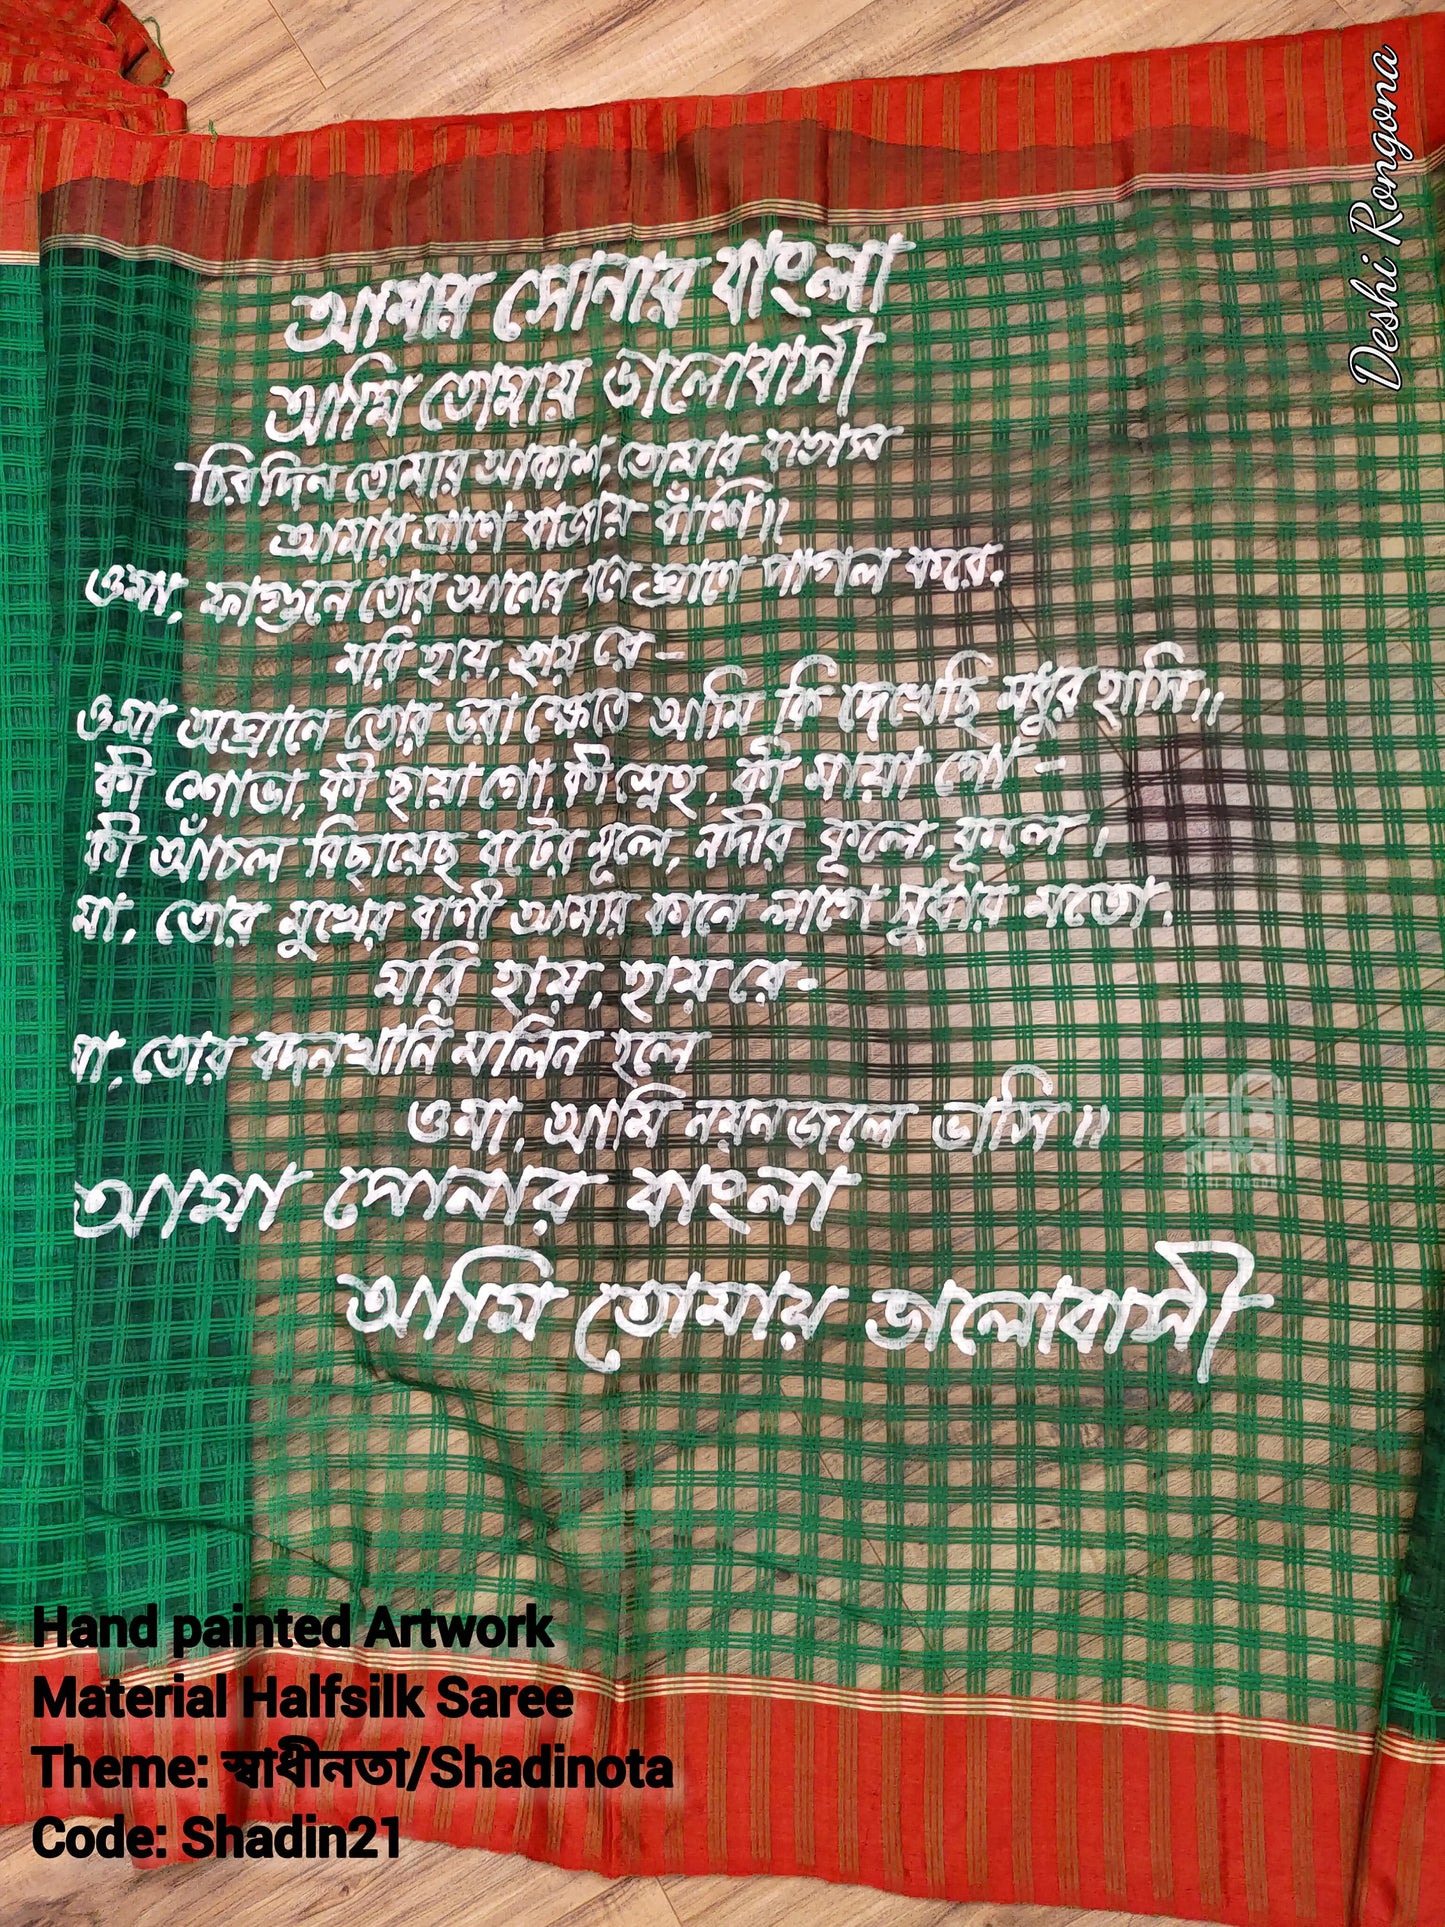 আমার সোনার বাংলা
আমি তোমায় ভালোবাসী
চিরদিন তোমার আকাশ, তোমার বাতাস
আমার প্রাণে বাজায় বাঁশি॥
ওমা, ফাগুনে তোর আমের বণে ঘ্রাণে পাগল করে,
মরি হায়, হায় রে -
ওমা অঘ্রানে তোর ভরা ক্ষেতে আমি কি দেখেছি মধুর হাসি॥
কী শোভা, কী ছায়া গো, কী স্নেহ, কী মায়া গো -
কী আঁচল বিছায়েছ বটের মূলে, নদীর কূলে, কূলে।
মা, তোর মুখের বাণী আমার কানে লাগে সুধার মতো,
মরি হায়, হায় রে -
মা, তোর বদনখানি মলিন হলে
ওমা, আমি নয়নজলে ভাসি॥
আমা সোনার বাংলা
আমি তোমায় ভালোবাসী
Deshi Rongona
DESHI RONGONA
Hand painted Artwork
Material Halfsilk Saree
Theme: স্বাধীনতা/Shadinota
Code: Shadin21